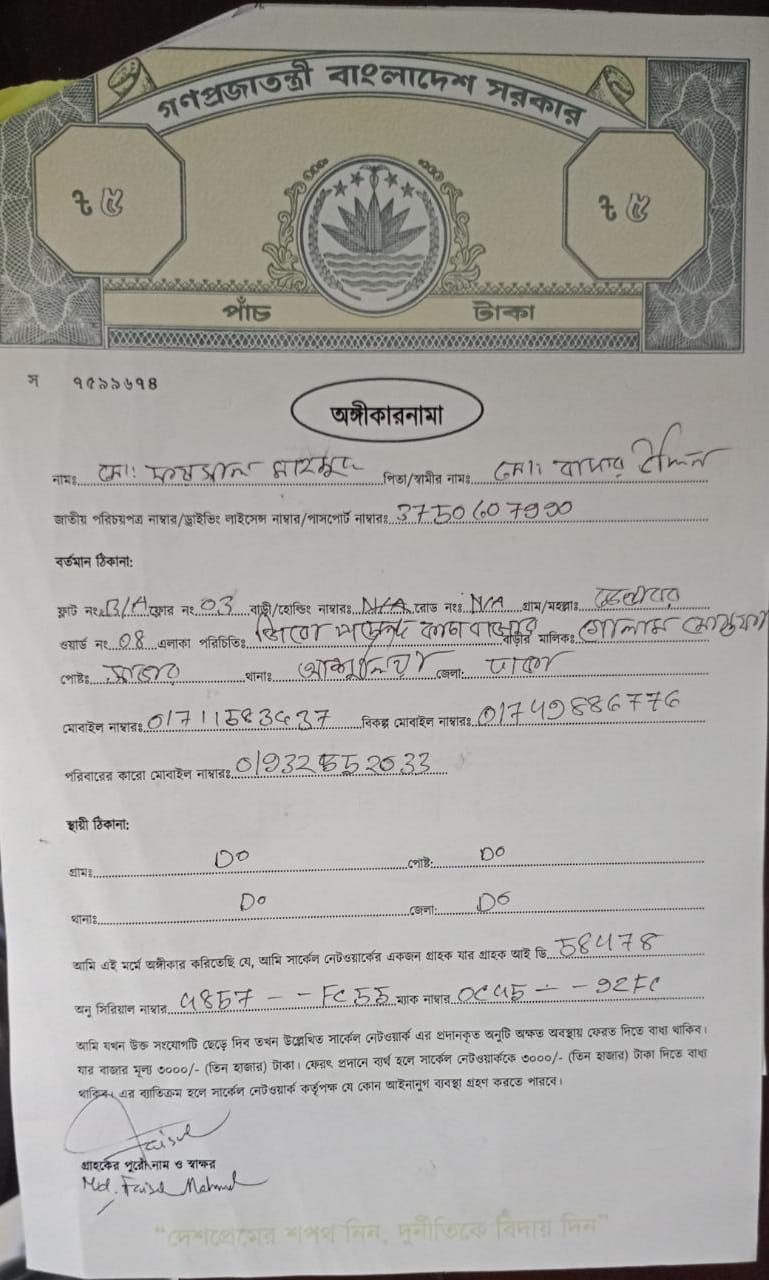 গণপ্রজাতন্ত্রী বাংলাদেশ সরকার
৳ ৫ ৳ ৫
পাঁচ টাকা
স ৭৫৯৯৬৭৪
অঙ্গীকারনামা
নামঃ মো: ফয়সাল মাহমুদ পিতা/স্বামীর নামঃ মো: বাদার উদ্দিন
জাতীয় পরিচয়পত্র নাম্বার/ড্রাইভিং লাইসেন্স নাম্বার/পাসপোর্ট নাম্বারঃ 3750607990
বর্তমান ঠিকানা:
ফ্লাট নংঃ B/A ফ্লোর নং 03 বাড়ী/হোল্ডিং নাম্বারঃ N/A রোড নংঃ N/A গ্রাম/মহল্লাঃ
ওয়ার্ড নং 08 এলাকা পরিচিতিঃ বাড়ীর মালিকঃ গোলাম মোস্তফা
পোষ্টঃ সাভার থানাঃ আশুলিয়া জেলা: ঢাকা
মোবাইল নাম্বারঃ 01711583637 বিকল্প মোবাইল নাম্বারঃ 01749886776
পরিবারের কারো মোবাইল নাম্বারঃ
স্থায়ী ঠিকানা:
গ্রামঃ DO পোষ্ট: DO
থানাঃ DO জেলা: DO
আমি এই মর্মে অঙ্গীকার করিতেছি যে, আমি সার্কেল নেটওয়ার্কের একজন গ্রাহক যার গ্রাহক আই ডি 58478
অনু সিরিয়াল নাম্বার 4857 - - FC55 ম্যাক নাম্বার 0C45 - - 92FC
আমি যখন উক্ত সংযোগটি ছেড়ে দিব তখন উল্লেখিত সার্কেল নেটওয়ার্ক এর প্রদানকৃত অনুটি অক্ষত অবস্থায় ফেরত দিতে বাধ্য থাকিব।
যার বাজার মূল্য ৩০০০/- (তিন হাজার) টাকা। ফেরৎ প্রদানে ব্যর্থ হলে সার্কেল নেটওয়ার্ককে ৩০০০/- (তিন হাজার) টাকা দিতে বাধ্য
থাকিব। এর ব্যতিক্রম হলে সার্কেল নেটওয়ার্ক কর্তৃপক্ষ যে কোন আইনানুগ ব্যবস্থা গ্রহণ করতে পারবে।
Faisal
গ্রাহকের পুরো নাম ও স্বাক্ষর
Md. Faisal Mahmud
"দেশপ্রেমের শপথ নিন, দুর্নীতিকে বিদায় দিন"